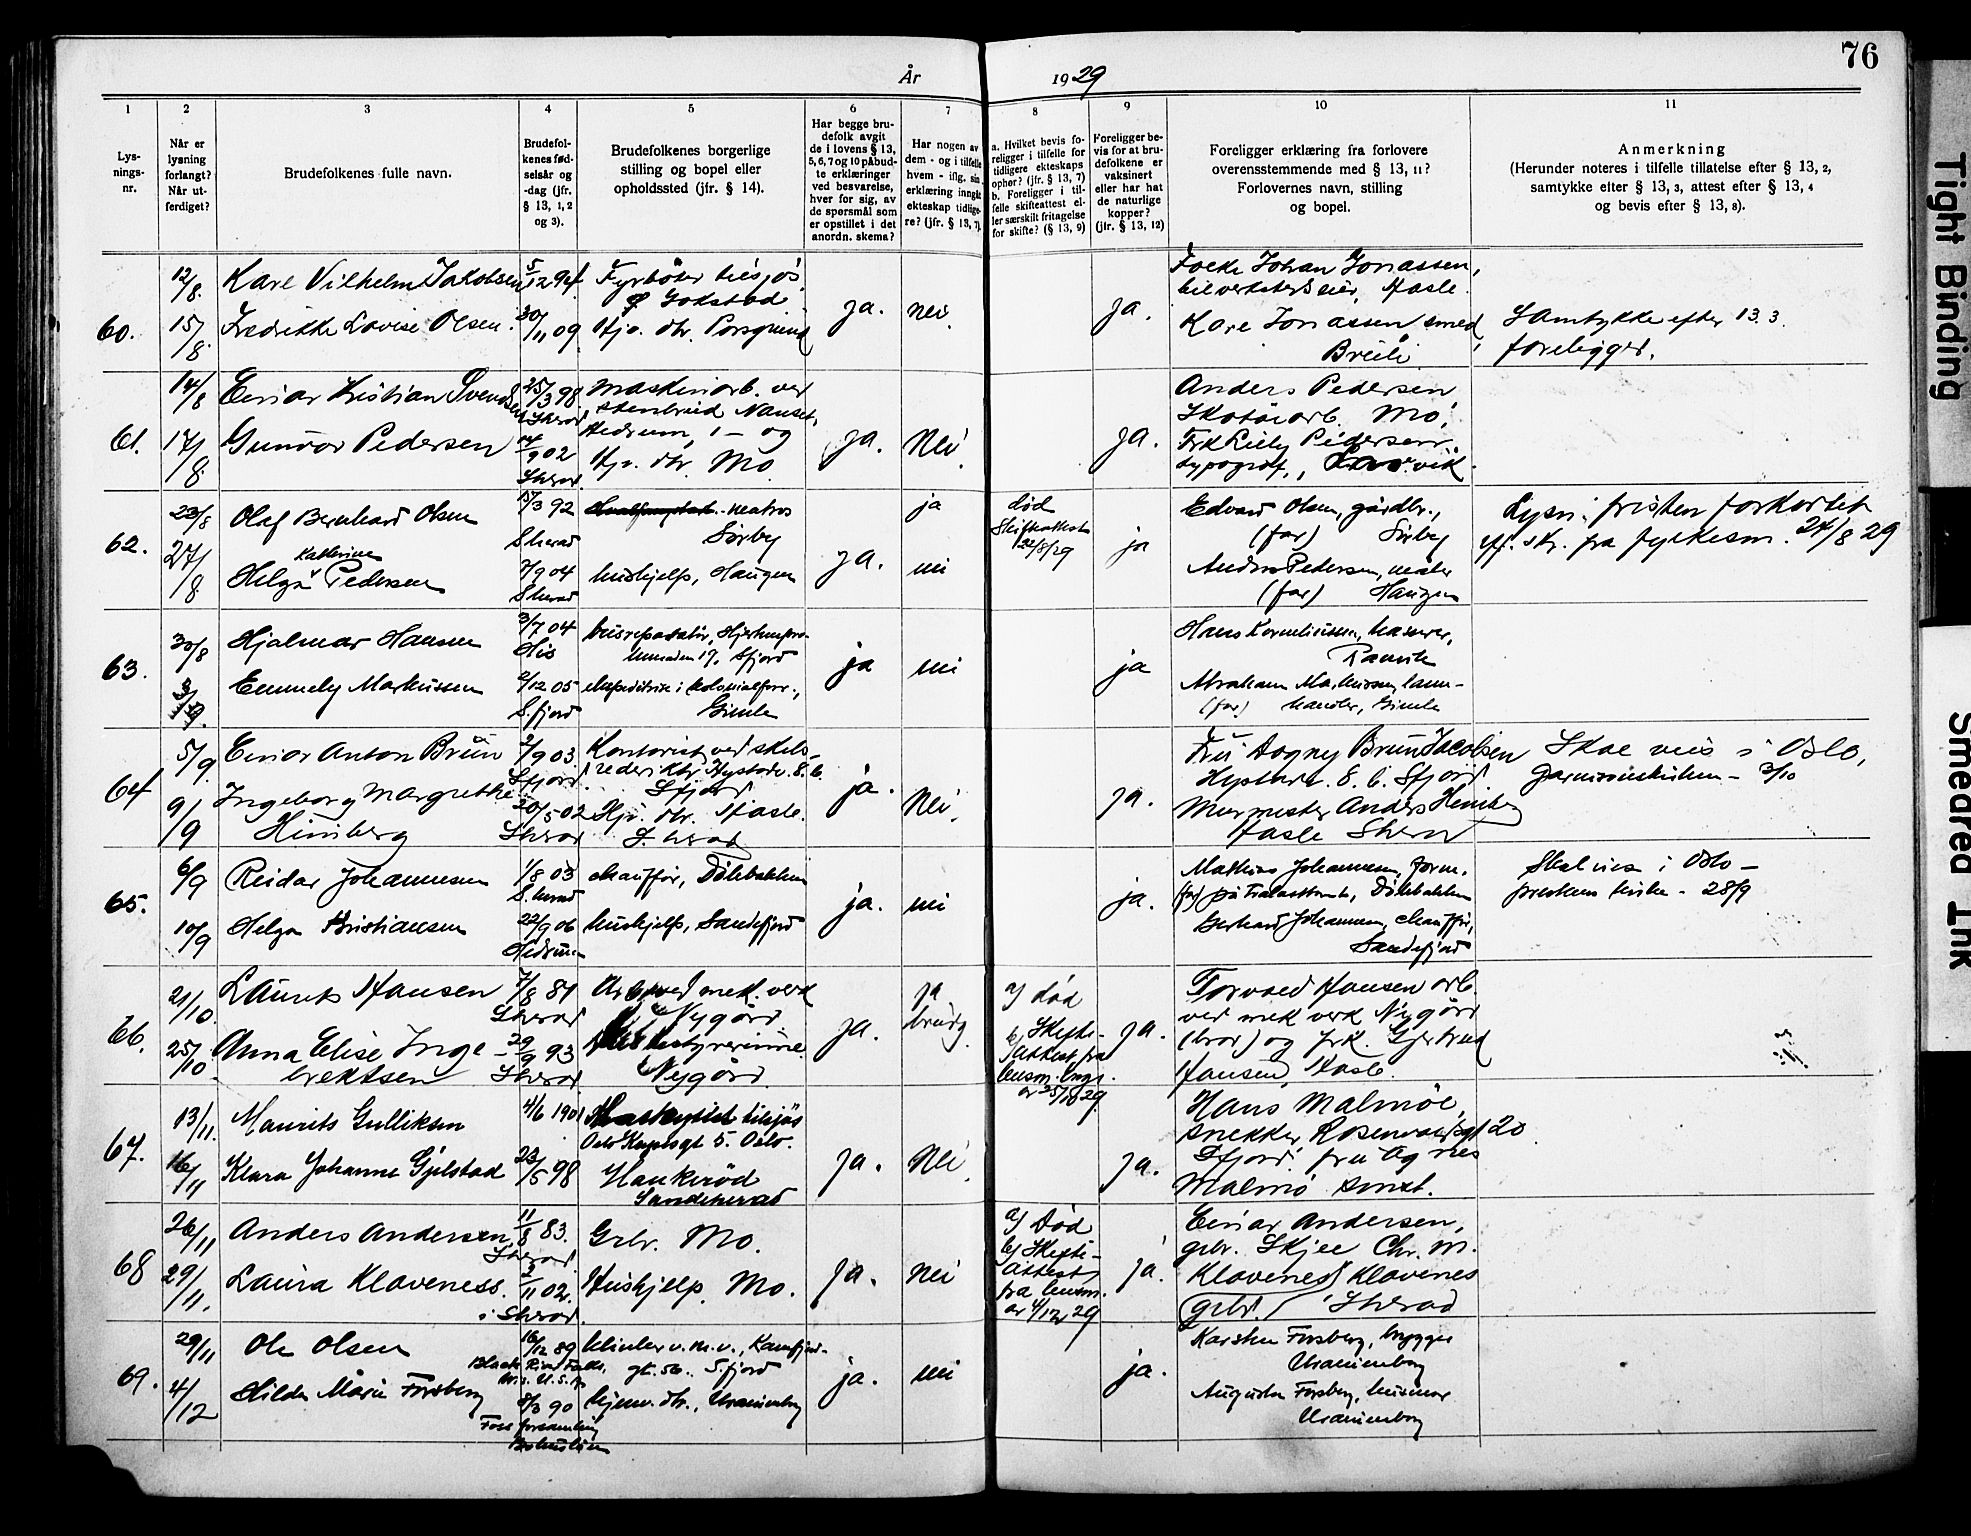 76
År 1929
1 2 3 4 5 6 7 8 9 10 11
Lys-
nings-
nr.
Når er
lysning
forlangt?
Når ut-
ferdiget?
Brudefolkenes fulle navn.
Brudefol-
kenes fød-
selsår og
-dag (jfr.
§ 13, 1, 2
og 3).
Brudefolkenes borgerlige
stilling og bopel eller
opholdssted (jfr. § 14).
Har begge bru-
defolk avgit
de i lovens § 13,
5, 6, 7 og 10 påbud-
te erklæringer
ved besvarelse,
hver for sig, av
de spørsmål som
er opstillet i det
anordn. skema?
Har nogen av
dem - og i tilfelle
hvem - iflg. sin
erklæring inngått
ekteskap tidlige-
re? (jfr. § 13, 7)
a. Hvilket bevis fo-
religger i tilfelle for
tidligere ekteskaps
ophør? (jfr. § 13, 7)
b. Foreligger i til-
felle skifteattest el-
ler særskilt fritagelse
for skifte? (§ 13, 9)
Foreligger be-
vis for at bru-
defolkene er
vaksinert
eller har hat
de naturlige
kopper?
(jfr. § 13, 12)
Foreligger erklæring fra forlovere
overensstemmende med § 13, 11?
Forlovernes navn, stilling
og bopel.
Anmerkning
(Herunder noteres i tilfelle tillatelse efter § 13, 2,
samtykke efter § 13, 3, attest efter § 13, 4
og bevis efter § 13, 8).
60.
12/8.
15/8
Karl Vilhelm Jakobsen
Fredrikke Lovise Olsen
5/12 94
30/11 09
Fyrböter tilsjös
Gokstad
Hjv. dtr. Porsgrund
ja.
nei
ja.
Johan Jonassen,
Hasle.
Kare Jonassen, smed
Breili
Samtykke efter 13.3.
foreligger.
61.
14/8
17/8
Einar Kristian Svendsen
Gunvor Pedersen
25/3 98
Sherad
14/9 02
Sherad
Maskinarb. ved
stenbrud Nanset,
Hedrum, - og
Hjv. dtr. Mo
ja.
Nei
ja.
Anders Pedersen
Skotöiarb. Mo.
Pedersen
typograf, Larvik.
62.
23/8
27/8
Olaf Bernhard Olsen
Kathrine
Helga Pedersen
15/3 92
Sherad
7/9 04
Sherad
matros
Sörby
hushjelp, Haugen
ja.
ja
nei
död
Skifteattest
22/8/29
ja
Edvard Olsen, gårdbr.,
(far) Sörby
Anders Pedersen, maler
(far) Haugen
Lysn. fristen forkortet
eft. skr. fra fylkesm. 24/8 29
63.
30/8
Hjalmar Hansen
Emmely Markussen
3/7 04
His
2/12 05
S.fjord
17, Sfjord
ekspeditrise i kolonialforr.,
Gimle
ja
nei
ja
Hans Korneliussen, murer,
Ranvik
Abraham Markussen, land-
(far) handler, Gimle
64
5/9
9/9
Einar Anton Bruun
Ingeborg Margrethe
Himberg
2/9 03
Sfjord
20/5 02
Sherad
Kontorist ved skibs-
Sfjord
Hjv. dtr. Hasle.
S. herad
ja.
Nei.
ja.
Fru Dagny Bruun Jacobsen
Sfjord
Murmester Anders Himberg
Hasle Sherad
Skal vies i Oslo,
Garnisonskirken - 3/10
65.
6/9
10/9
Reidar Johannesen
Helga Kristiansen
1/8 03
S.herad
22/9 06
Hedrum
chauffør, Dölebakken
hushjelp, Sandefjord
ja.
nei
ja.
Mathias Johannesen, form.
(far) på Framnes, Dölebakken
Gerhard Johannesen, chauffør,
Sandefjord
Skal vies i Oslo -
kirke - 28/9
66.
21/10
25/10
Laurits Hansen
Anna Elise Inge-
brektsen
7/8 81
Sherad
29/9 93
Sherad
Arb. ved mek. verk
Nygård
bestyrerinne
Nygård.
ja.
ja
brudg.
a) död
b) Skifte-
attest fra
lensm.
av 25/10 29.
ja.
Torvald Hansen arb.
ved mek verk Nygård
(bror) og frk. Gjertrud
Hansen, Hasle.
67.
13/11.
16/11
Maurits Gulliksen
Klara Johanne Gjelstad
4/6 1901
23/5 98
tilsjös
5. Oslo.
Haukeröd
Sandeherad
ja.
Nei.
ja.
Hans Malmöe,
snekker, Rosenvoldsgt 20
Sfjord. fru Agnes
Malmö smst.
68
26/11
29/11.
Anders Andersen
Laura Klaveness.
11/8 83.
Sherad.
2/11 02.
i Sherad.
Grbr. Mo.
Hushjelp Mo.
ja.
Nei
a) Död
b) Skifte-
attest
fra lensm.
av 4/12 29
ja.
Einar Andersen,
grbr. Skjee Chr. M.
Klavenes, Klavenes
grbr. Sherad
69.
29/11
4/12
Ole Olsen
Hilda Marie Forsberg
16/12 89
Black River Falls,
Wis. U.S.A.
8/3 90
Foss forsamling
Bohuslän
Klinker v. m. v., Kamfjord-
gt. 56.. S.fjord
hjemv. dtr., Uranienborg
ja.
nei
ja.
Karsten Forsberg, brygger
Uranienborg
Augusta Forsberg, husmor
Uranienborg
Tight Binding
Smeared Ink